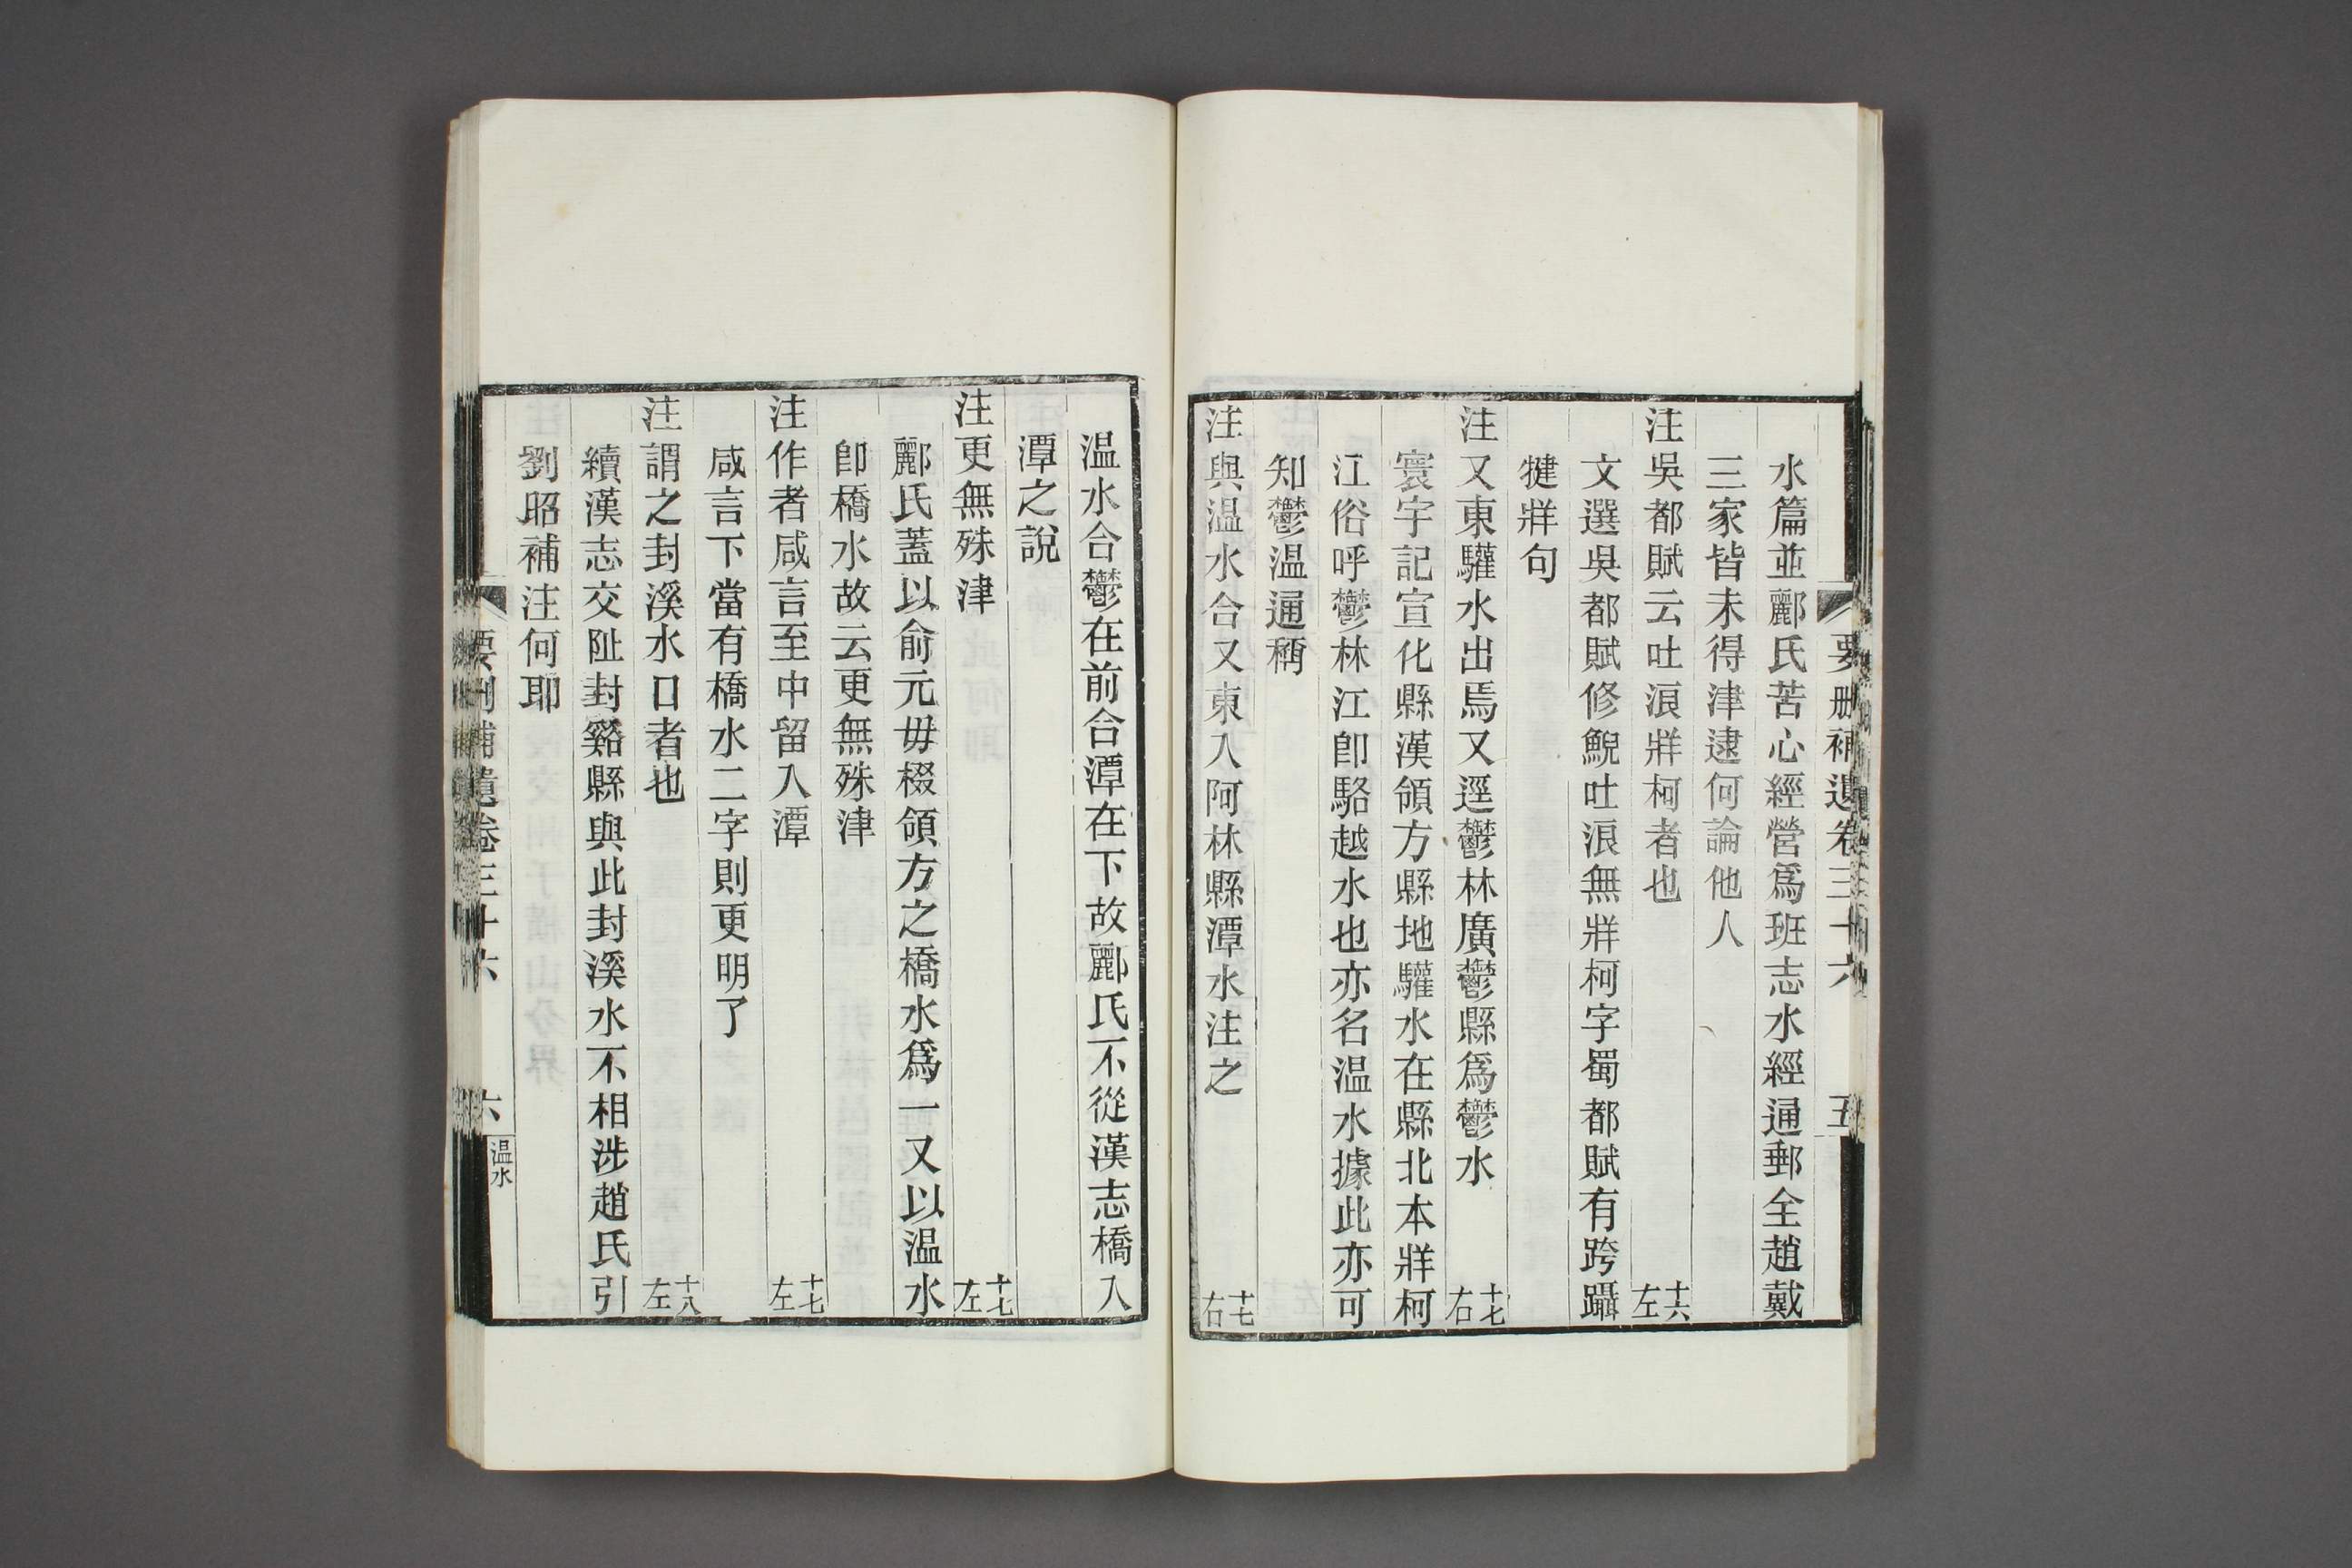 要删補遺卷三十六 五
水篇並酈氏苦心經營爲班志水經通郵全趙戴
三家皆未得津逮何論他人
注吳都賦云吐浪牂柯者也 十六左
文選吳都賦修鯢吐浪無牂柯字蜀都賦有跨躡
犍牂句
注又東驩水出焉又逕鬱林廣鬱縣爲鬱水 十七右
寰宇記宣化縣漢領方縣地驩水在縣北本牂柯
江俗呼鬱林江卽駱越水也亦名温水據此亦可
知鬱温通稱
注與温水合又東入阿林縣潭水注之 十七右
温水合鬱在前合潭在下故酈氏不從漢志橋入
潭之說
注更無殊津 十七左
酈氏蓋以俞元毋棳領方之橋水爲一又以温水
卽橋水故云更無殊津
注作者咸言至中留入潭 十七左
咸言下當有橋水二字則更明了
注謂之封溪水口者也 十八左
續漢志交阯封谿縣與此封溪水不相涉趙氏引
劉昭補注何耶
要删補遺卷三十六 六
温水